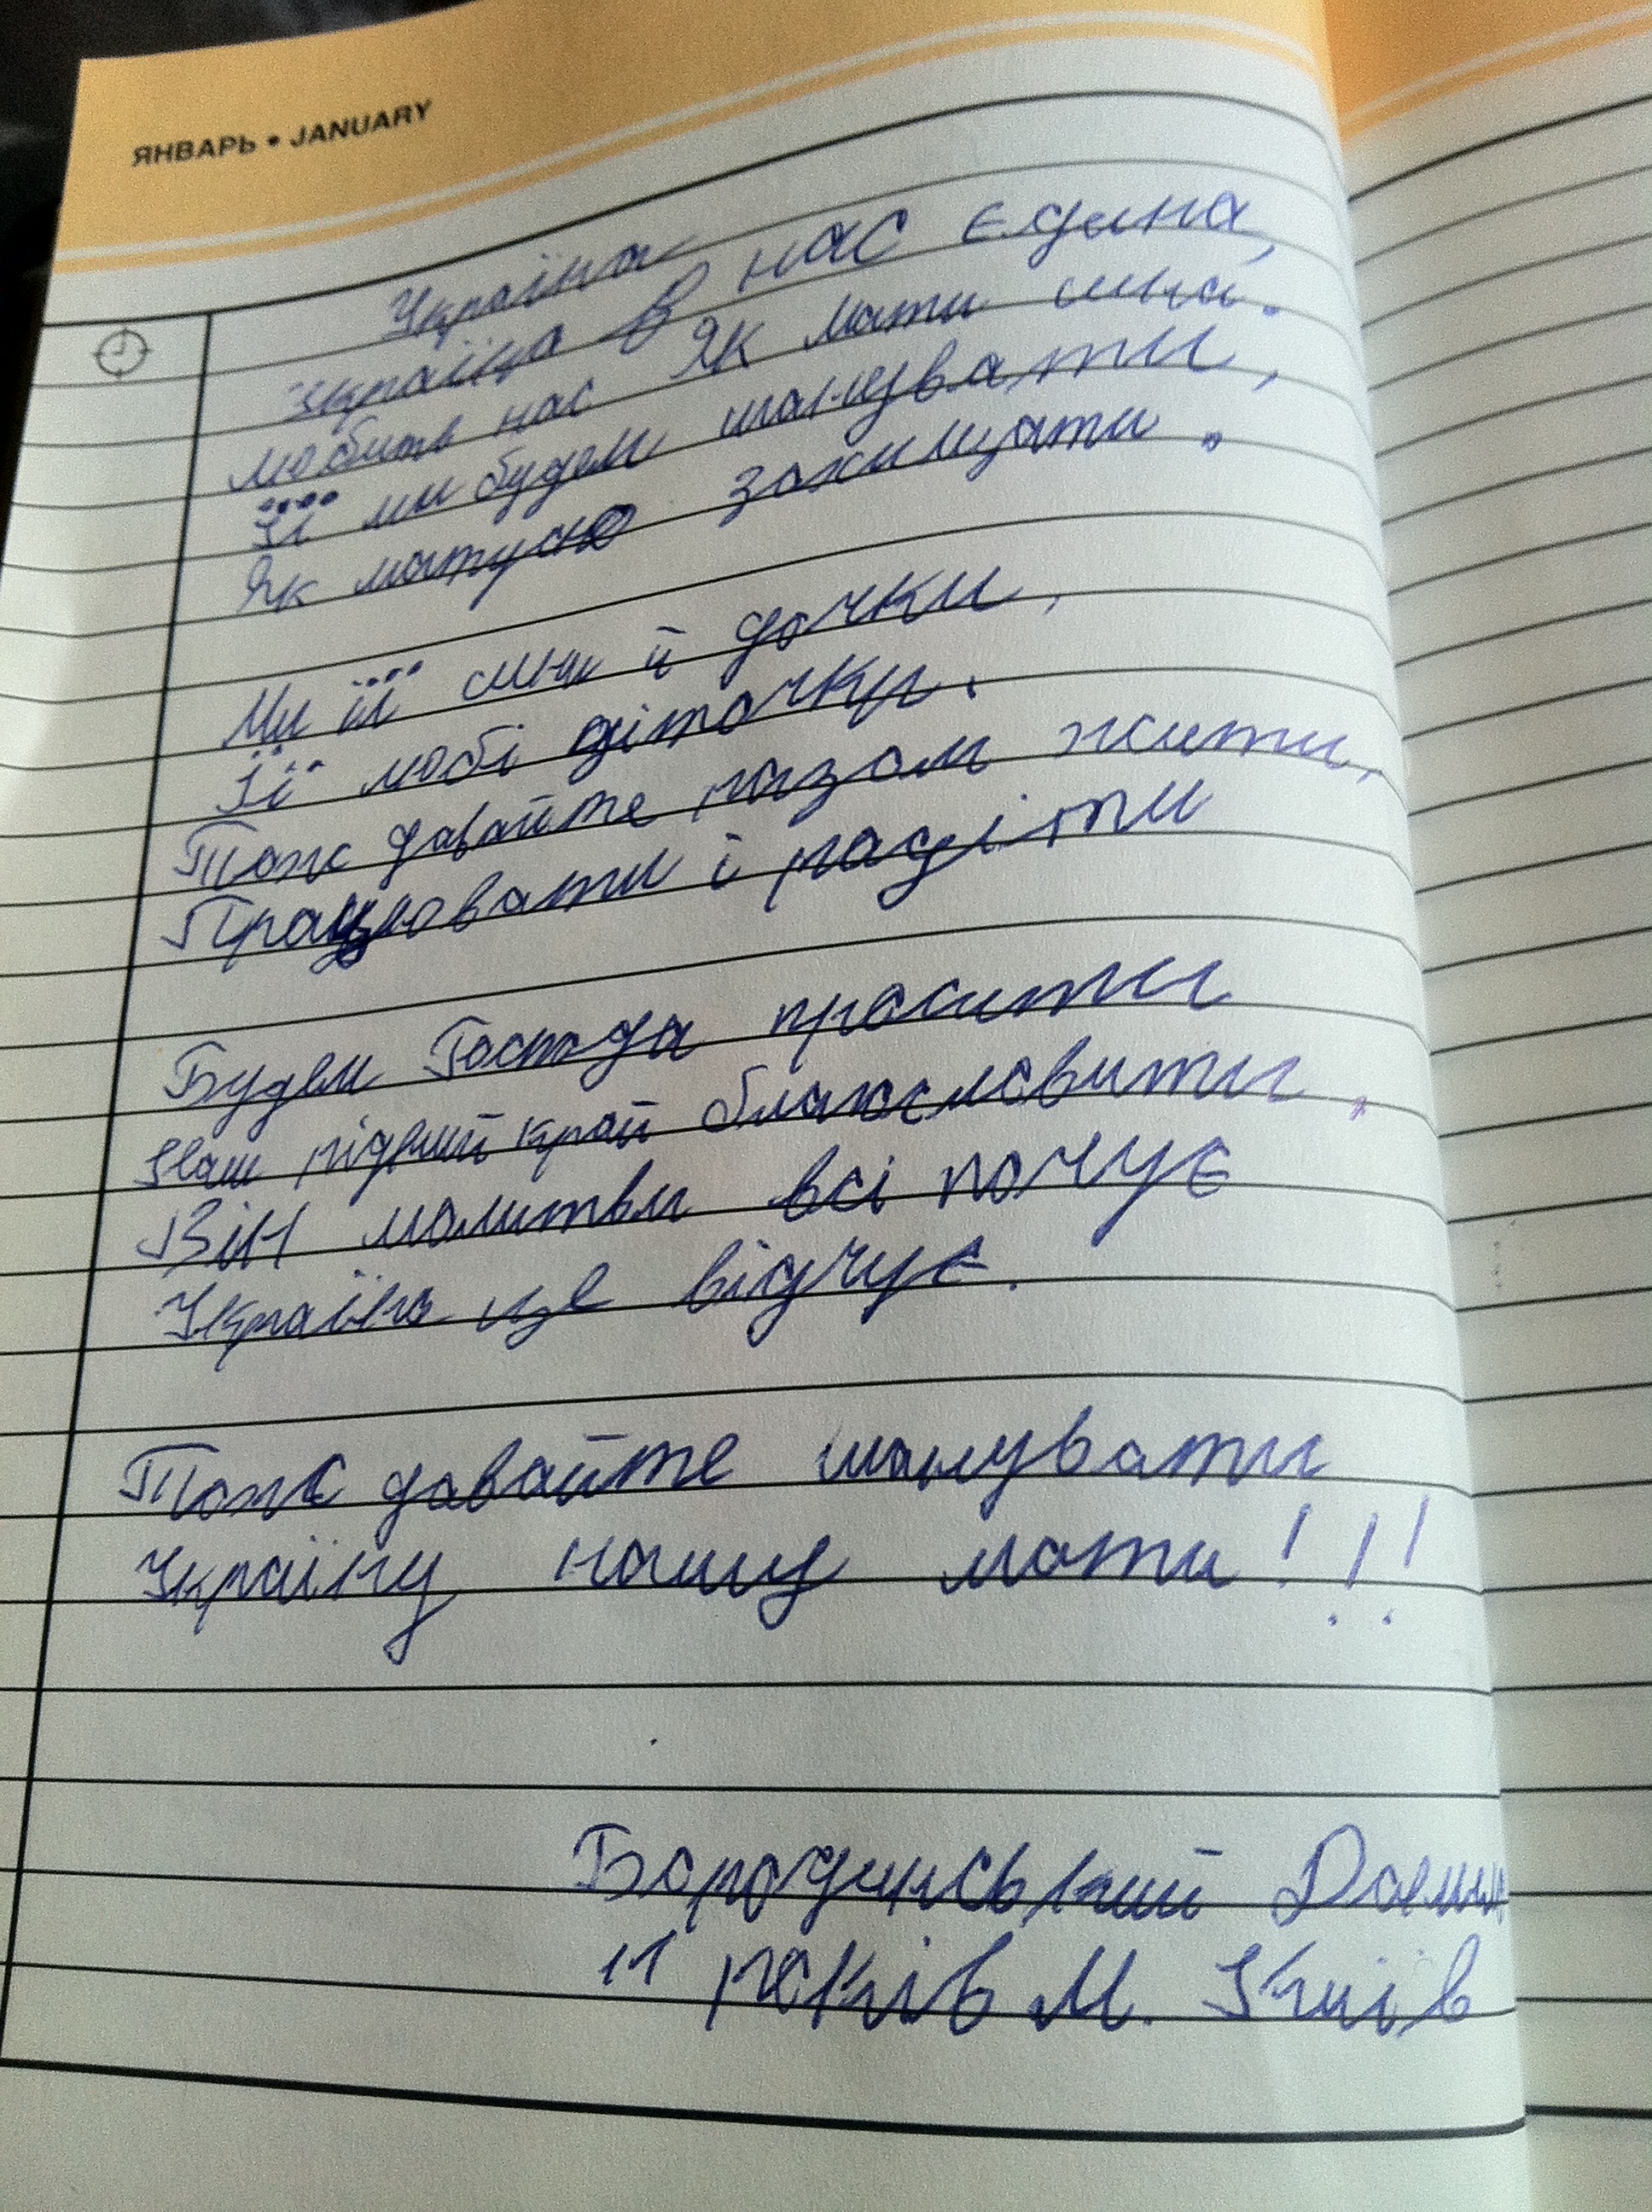 ЯНВАРЬ • JANUARY
Україна
Україна в нас єдина,
любить нас як мати сина.
Її ми будем шанувати,
Як матусю захищати.
Ми її сини й дочки,
Її любі діточки.
Тож давайте разом жити,
Працювати і радіти
Будем Господа просити
Наш рідний край благословити.
Він молитви всі почує
Україна це відчує.
Тож давайте шанувати
Україну нашу мати!!!
Бородинський
11 років м. Київ